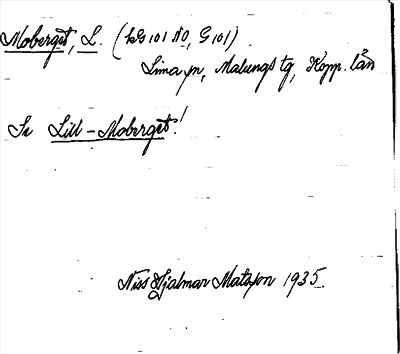 Moberget, L. (bG101 NO, G101)
Lima sn, Malungs tg, Kopp. län
Se Lill-Moberget!
Niss Hjalmar Matsson 1935.